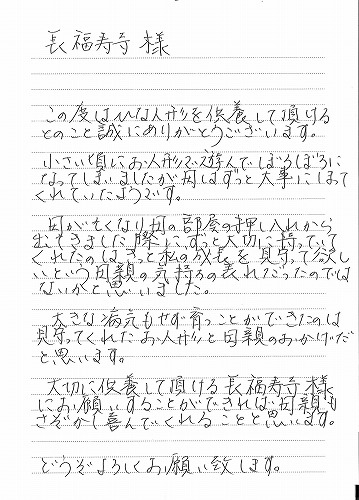 長福寿寺様
この度はひな人形を供養して頂ける
とのこと誠にありがとうございます。
小さい頃にお人形で遊んでぼろぼろに
なってしまいましたが母はずっと大事にしまって
くれていたようです。
母が亡くなり母の部屋の押し入れから
出てきました際に、ずっと大切に持っていて
くれたのはきっと私の成長を見守って欲し
いという母親の気持ちの表れだったのでは
ないかと思いました。
大きな病気もせず育つことができたのは
見守ってくれたお人形と母親のおかげだ
と思います。
大切に供養して頂ける長福寿寺様
にお願いすることができれば母親も
さぞかし喜んでくれることと思います。
どうぞよろしくお願い致します。